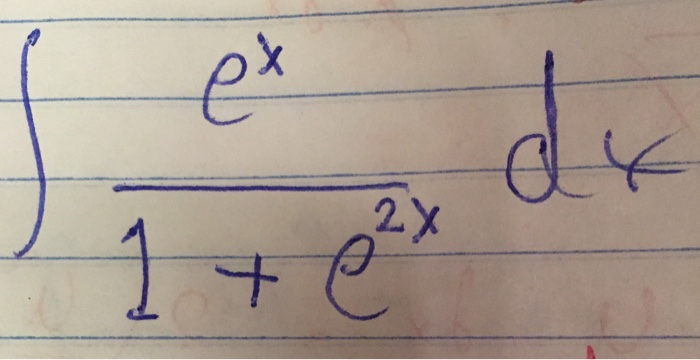 ∫ e^x / (1 + e^{2x}) dx